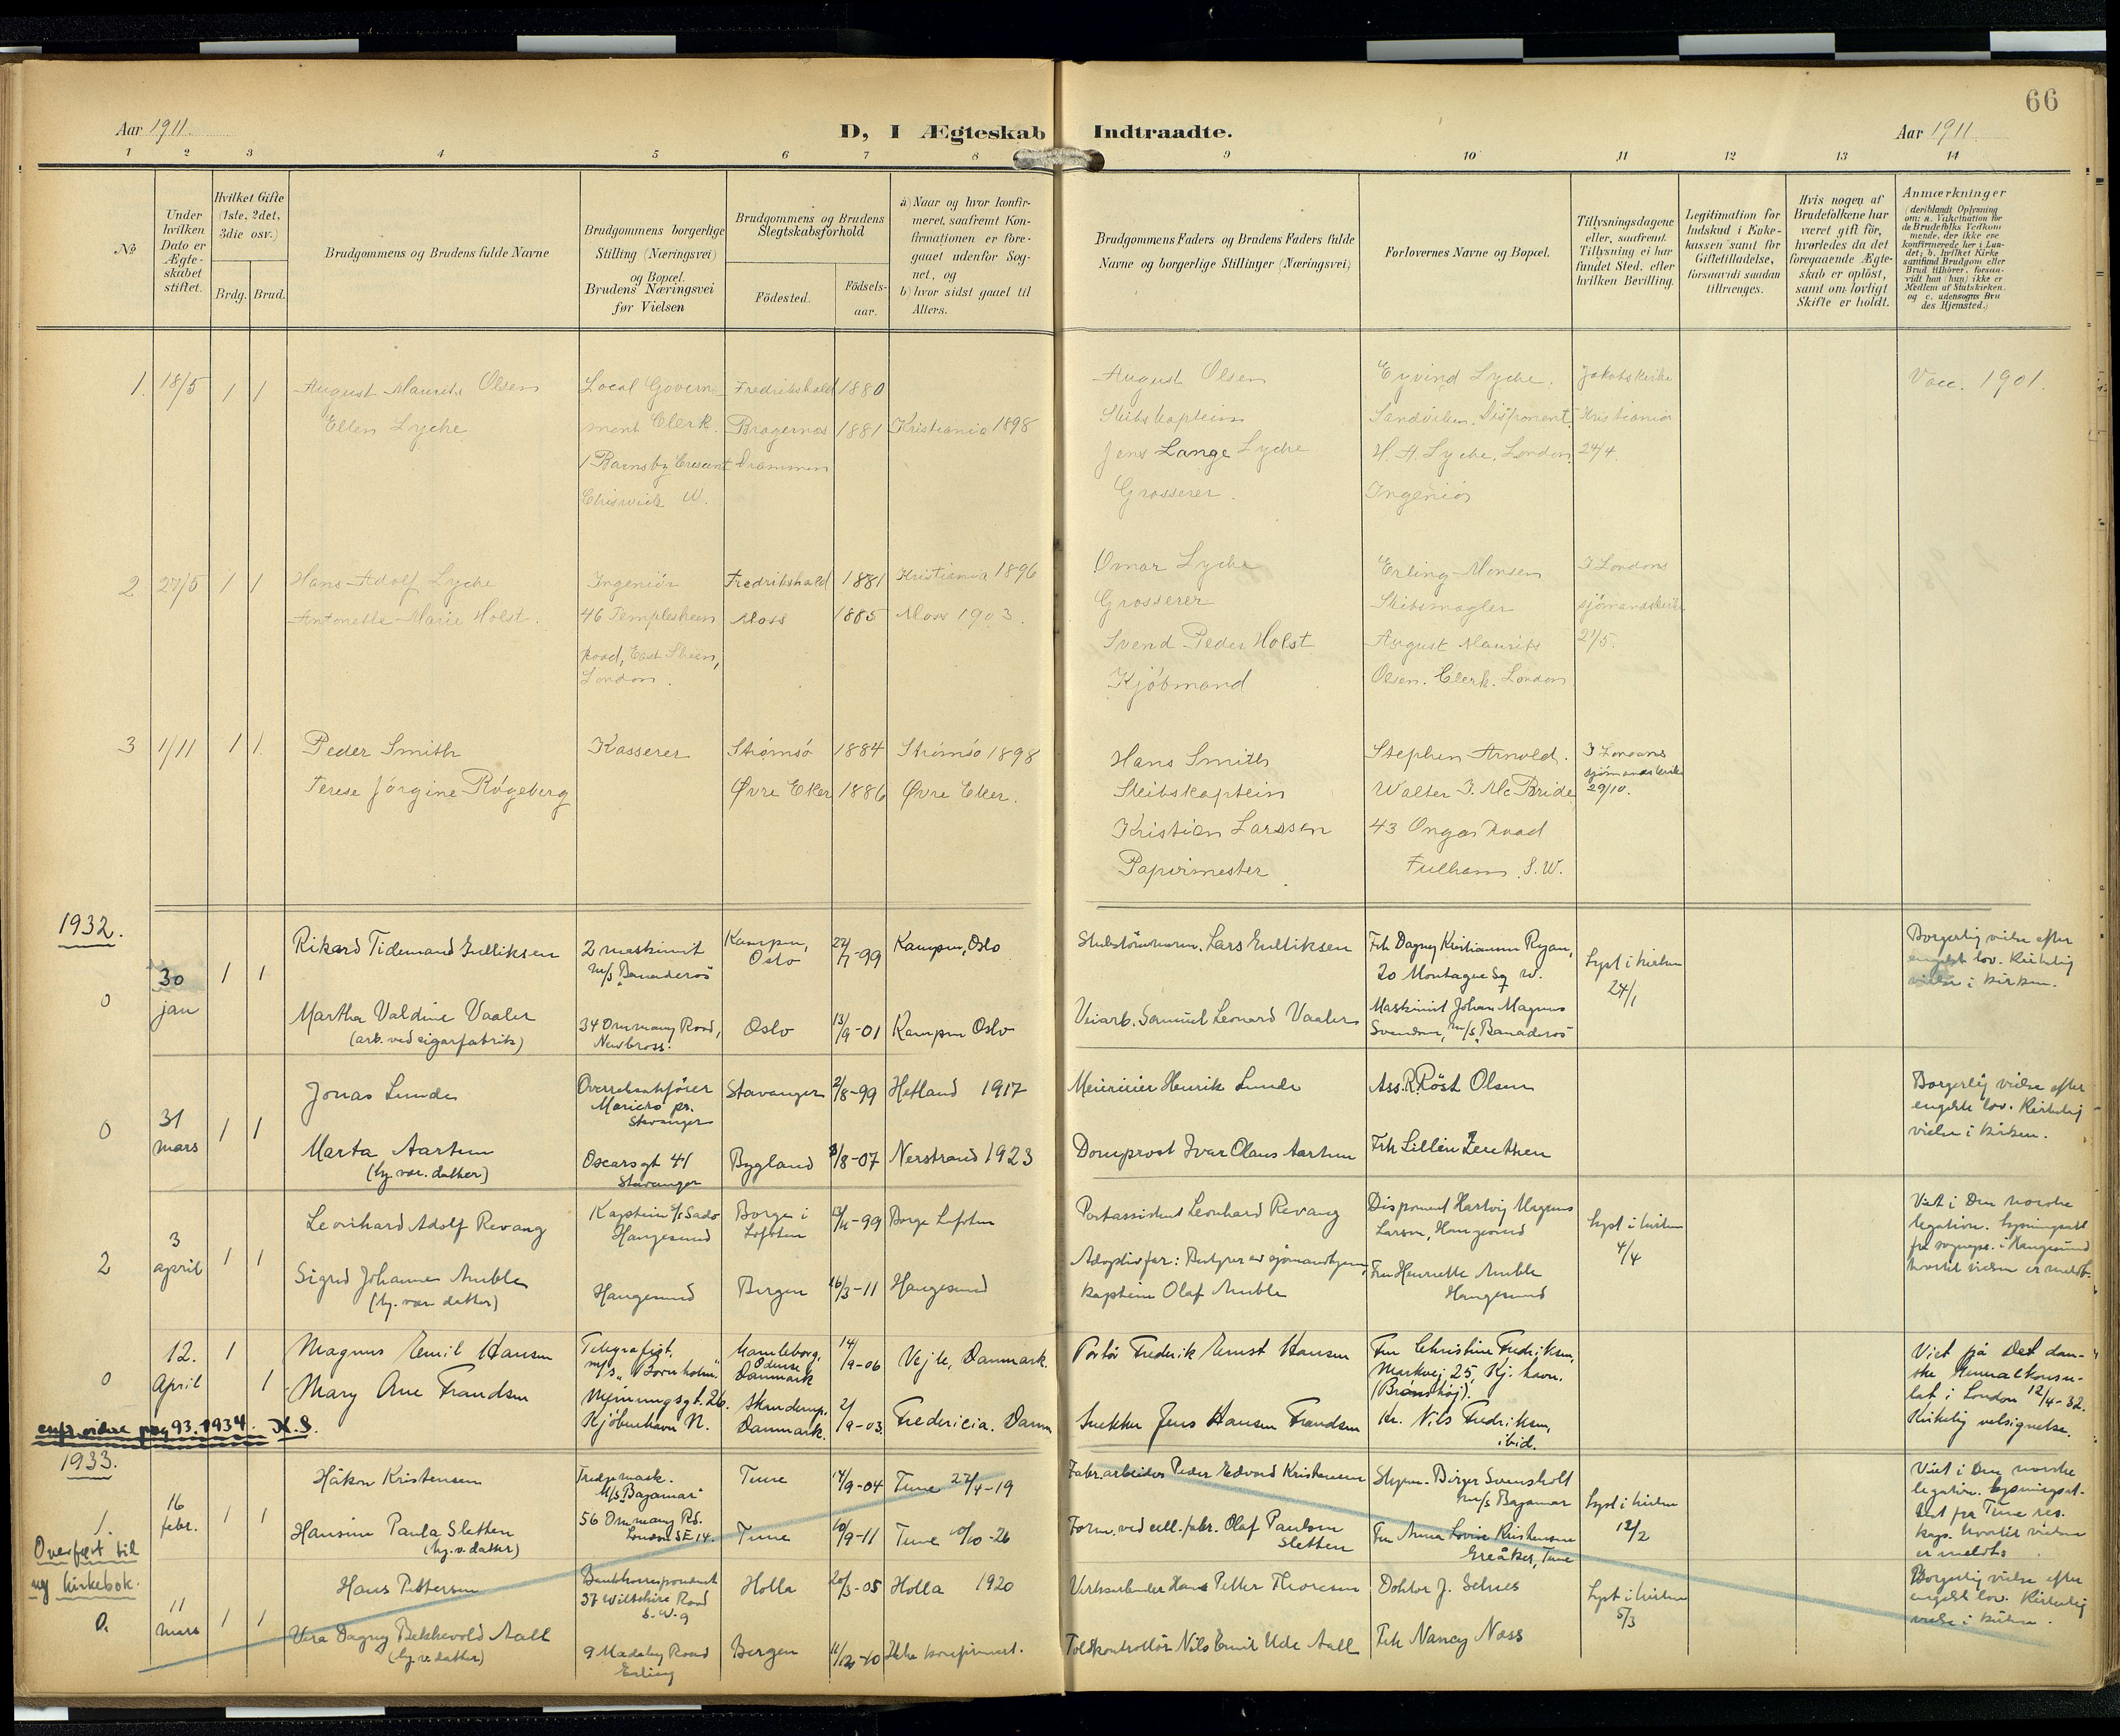 66
Aar 1911.
D, I Ægteskab Indtraadte.
Aar 1911
1 2 3 4 5 6 7 8 9 10 11 12 13 14
№
Under hvilken Dato er Ægte-skabet stiftet.
Hvilket Gifte (1ste, 2det, 3die osv.)
Brdg. Brud.
Brudgommens og Brudens fulde Navne
Brudgommens borgerlige Stilling (Næringsvei) og Bopæl. Brudens Næringsvei før Vielsen
Brudgommens og Brudens Slegtskabsforhold
Födested.
Födsels-aar.
a) Naar og hvor konfir-meret, saafremt Kon-firmationen er fore-gaaet udenfor Sog-net, og
b) hvor sidst gaaet til Alters.
Brudgommens Faders og Brudens Faders fulde Navne og borgerlige Stillinger (Næringsvei)
Forlovernes Navne og Bopæl.
Tillysningsdagene eller, saafremt Tillysning ei har fundet Sted, efter hvilken Bevilling.
Legitimation for Indskud i Enke-kassen samt for Giftetilladelse, forsaavidt saadan tiltrænges.
Hvis nogen af Brudefolkene har været gift för, hvorledes da det foregaaende Ægte-skab er oplöst, samt om lovligt Skifte er holdt.
Anmærkninger (deriblandt Oplysning om: a. Vakcination for de Brudefolks Vedkom mende, der ikke ere konfirmerede her i Lan-det; b. hvilket Kirke samfund Brudgom eller Brud tilhörer, forsaa-vidt han (hun) ikke er Medlem af Statskirken, og c. udensogns Bru des Hjemsted.)
1. 18/5 1 1 August Maurits Olsen
Local Govern
Fredrikshald 1880
August Olsen
Eyvind Lyche,
Jakobs kirke
Vacc. 1901.
Ellen Lyche
ment Clerk.
Bragernes 1881 Kristiania 1898
Skibskaptein
Sandviken. Disponent.
Kristiania
1 Barnsby Crescent
Drammen
Jens Lange Lyche
H. A. Lyche, London.
24/4.
Chiswick W.
Grosserer.
Ingeniör
2 27/5 1 1 Hans Adolf Lyche
Ingeniör
Fredrikshald 1881 Kristiania 1896
Omar Lyche
Erling Monsen
I Londons
Antonette Marie Holst.
46 Templesheen
Moss 1885 Moss 1903.
Grosserer
Skibsmægler
sjömandskirke
Road, East Sheen,
Svend Peder Holst
August Maurits
21/5.
London.
Kjöbmand
Olsen. Clerk. London
3 1/11 1 1. Peder Smith
Kasserer
Strömsö 1884 Strömsö 1898
Hans Smith
Stephen Arnold.
I Londons
sjömandskirke
Terese Jörgine Rögeberg
Øvre Eker 1886 Øvre Eker.
Skibskaptein
Walter I. Mc Bride
29/10.
Kristian Larssen
43 Ongar Road
Papirmester
Fulham S.W.
1932.
30 jan 0 1 1
Rikard Tidemand Gulliksen
2 maskinist
m/s "Banaderos"
Kampen, Oslo
27/7-99
Kampen, Oslo
Lars Gulliksen
Frk Dagny Kristiansen Ryan,
20 Montague Sq W.
Lyst i kirken
24/1
Borgerlig vielse efter
engelsk lov. Kirkelig
vielse i kirken.
Martha Valdine Vaaler
(arb. ved sigarfabrik)
34 Ommany Road,
Newcross.
Oslo
13/9-01
Kampen Oslo
Veiarb. Samuel Leonard Vaaler
Maskinist Johan Magnus
Svendsen, m/s "Banaderos"
31 mars 0 1 1
Jonas Lunde
Mariero pr.
Stavanger
Stavanger
2/8-99
Hetland 1917
Meierieier Henrik Lunde
Ass. R. Röst Olsen
Borgerlig vielse efter
engelsk lov. Kirkelig
vielse i kirken.
Marta Aartun
(hj. vær. datter)
Oscarsgt 41
Stavanger
Bygland
8/8-07
Nerstrand 1923
Domprost Ivar Claus Aartun
Frk Lillein
3 april 2 1 1
Leonhard Adolf Revang
Kaptein
Haugesund
Borge i
Lofoten
Borge Lofoten
Postassistent Leonhard Revang
Disponent Hartvig Magnus
Larsen, Haugesund
Lyst i kirken
4/4
Viet i Den norske
legation. Lysningsatt
fra sogneps. i Haugesund
hvortil vielsen er meldt.
Sigrid Johanne Amble
(hj. vær. datter)
Haugesund
Bergen
16/3-11
Haugesund
Adoptivfar: Bestyrer av sjömandshjem,
kaptein Olaf Amble
Fru Henriette Amble
Haugesund
12. April 0 1 1
Magnus Emil Hansen
Telegrafist,
m/s "Bornholm"
Odense
Danmark
14/9-06
Vejle, Danmark.
Portör Frederik Ernst Hansen
Fru Christine Fredriksen,
Markvej 25, Kj.havn.
(Brönshöj).
Viet på Det dan-
ske Generalkonsu-
lat i London 12/4-32.
Kirkelig velsignelse.
Mary Ane Frandsen
Meiningsgt. 26.
Kjöbenhavn N.
Skuderup.
Danmark.
2/9-03.
Fredericia. Danm
Snekker Jens Hansen Frandsen
Hr. Nils Fredriksen,
ibid.
pag 93. 1934. N.S.
1933.
16 febr. 1. 1 1
Håkon Kristensen
Tredje mask.
M/s "Bajamar"
Tune
14/9-04
Tune 27/4-19
Fabr.arbeider Peder Edvard Kristensen
Birger Svensholt
m/s Bajamar
Lyst i kirken
12/2
Viet i Den norske
legation. Lysningsat-
test fra Tune res.
kap. hvortil vielsen
er meldt.
Hansine Paula Sletten
(hj. v. datter)
56 Ommany Rd.
London SE 14.
Tune
10/9-11
Tune 10/10-26
Form. ved cell. fabr. Olaf Paulsen
Sletten
Fru Anna Lovise Kristensen
Greåker, Tune
Overført til
ny kirkebok.
11 mars 0. 1 1
Hans Pettersen
Bankkorrespondent
37 Wiltshire Road
S.W.9
Holla
20/3-05
Holla 1920
Hans Petter Thoresen
Doktor J. Selnes
Lyst i kirken
5/3
Borgerlig vielse efter
engelsk lov. Kirkelig
vielse i kirken.
Vera Dagny Bekkevold Aall
(hj. v. datter)
9 Madeley Road
Ealing
Bergen
11/12-10
Ikke konfirmert.
Toldkontrollör Nils Emil Ude Aall
Frk Nancy Næss